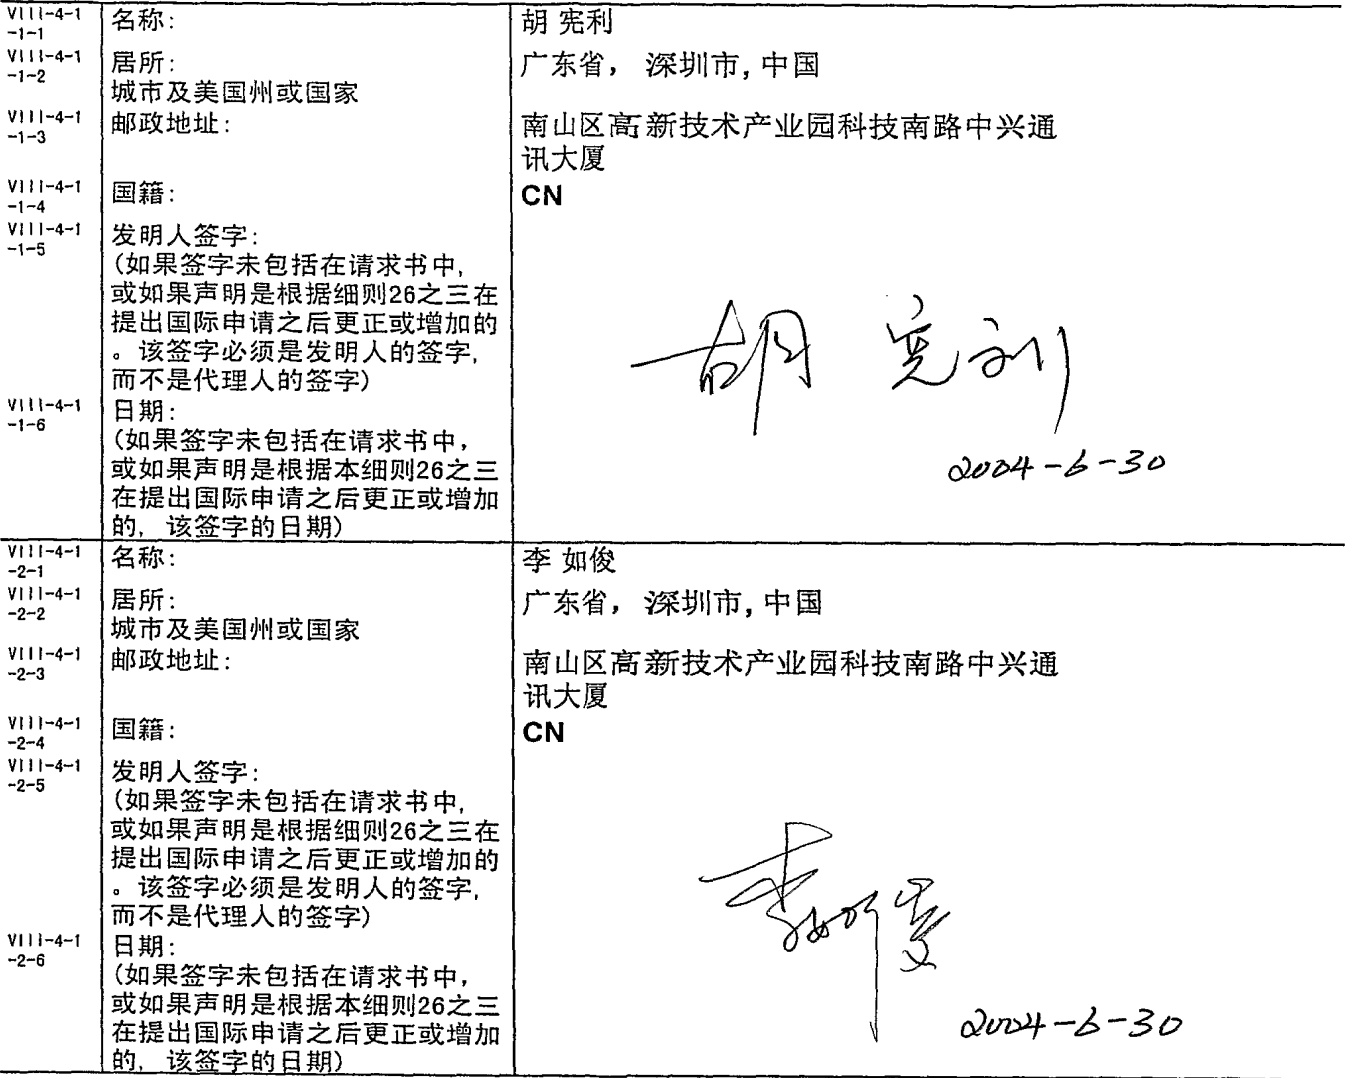 VIII-4-1 名称: 胡 宪利
-1-1
VIII-4-1 居所: 广东省, 深圳市, 中国
-1-2 城市及美国州或国家
VIII-4-1 邮政地址: 南山区高新技术产业园科技南路中兴通
-1-3 讯大厦
VIII-4-1 国籍: CN
-1-4
VIII-4-1 发明人签字:
-1-5
(如果签字未包括在请求书中,
或如果声明是根据细则26之三在
提出国际申请之后更正或增加的
。该签字必须是发明人的签字,
而不是代理人的签字)
胡 宪利
VIII-4-1 日期:
-1-6
(如果签字未包括在请求书中,
或如果声明是根据本细则26之三
在提出国际申请之后更正或增加
的, 该签字的日期)
2004-6-30
VIII-4-1 名称: 李 如俊
-2-1
VIII-4-1 居所: 广东省, 深圳市, 中国
-2-2 城市及美国州或国家
VIII-4-1 邮政地址: 南山区高新技术产业园科技南路中兴通
-2-3 讯大厦
VIII-4-1 国籍: CN
-2-4
VIII-4-1 发明人签字:
-2-5
(如果签字未包括在请求书中,
或如果声明是根据细则26之三在
提出国际申请之后更正或增加的
。该签字必须是发明人的签字,
而不是代理人的签字)
李如俊
VIII-4-1 日期:
-2-6
(如果签字未包括在请求书中,
或如果声明是根据本细则26之三
在提出国际申请之后更正或增加
的, 该签字的日期)
2004-6-30